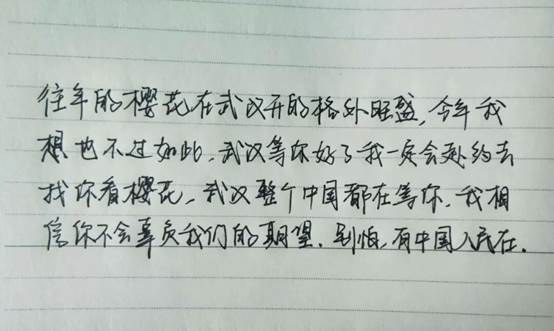 往年的樱花在武汉开的格外旺盛,今年我
想也不过如此,武汉等你好了我一定会赴约去
找你看樱花,武汉整个中国都在等你,我相
信你不会辜负我们的期望.别怕,有中国人民在.